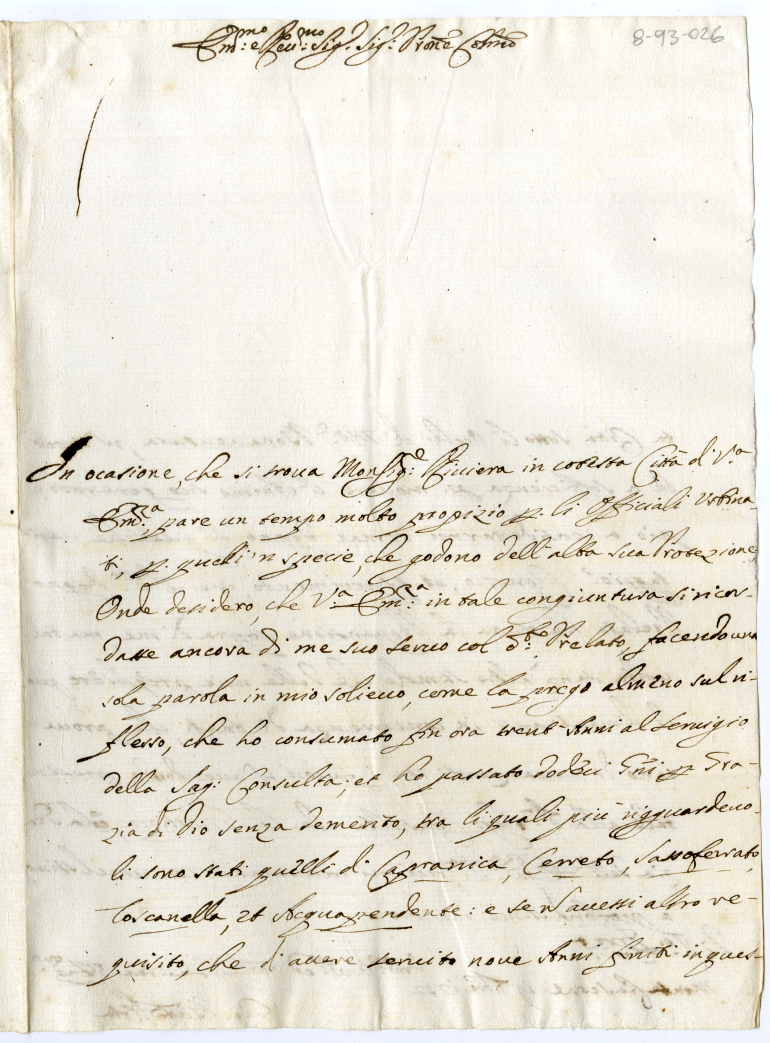 8-93-026
Em.mo e Rev.mo Sig.r Sig.r Prone Colmo
In ocasione, che si trova Monsig.e Riviera in cotesta Città di V.a
Em.za, pare un tempo molto propizio p. li Officiali Urbina-
ti, p. quelli 'n specie, che godono dell'alta sua Protezione;
Onde desidero, che V.a Em.za in tale congiuntura si ricor-
dasse ancora di me suo servo col d.to Prelato, facendo una
sola parola in mio solievo, come la prego almeno sul ri-
flesso, che ho consumato fin ora trent'Anni al servigio
della Sag: Consulta; et ho passato dodeci Gni p Gra-
zia di Dio senza demerito, tra li quali più rigguardevo-
li sono stati quelli di Capranica, Cerreto, Sassoferrato,
Toscanella, et Acquapendente: e se n'avessi altro re-
quisito, che di avere servito nove Anni finiti in ques-